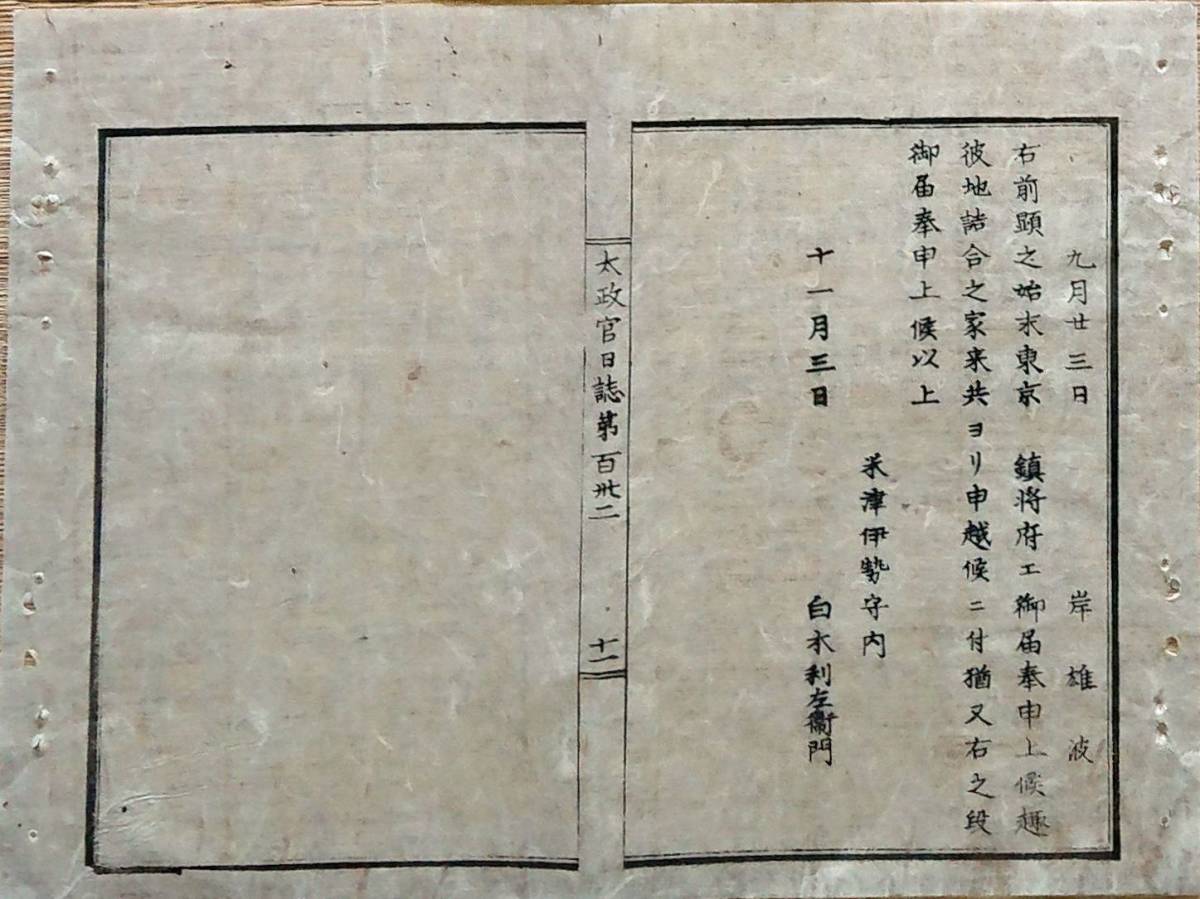 九月廿三日 岸雄波
右前顕之始末東京 鎮将府エ御届奉申上候趣
彼地詰合之家来共ヨリ申越候ニ付猶又右之段
御届奉申上候以上
米津伊勢守内
十一月三日 白水利左衞門
太政官日誌第百卅二 十一